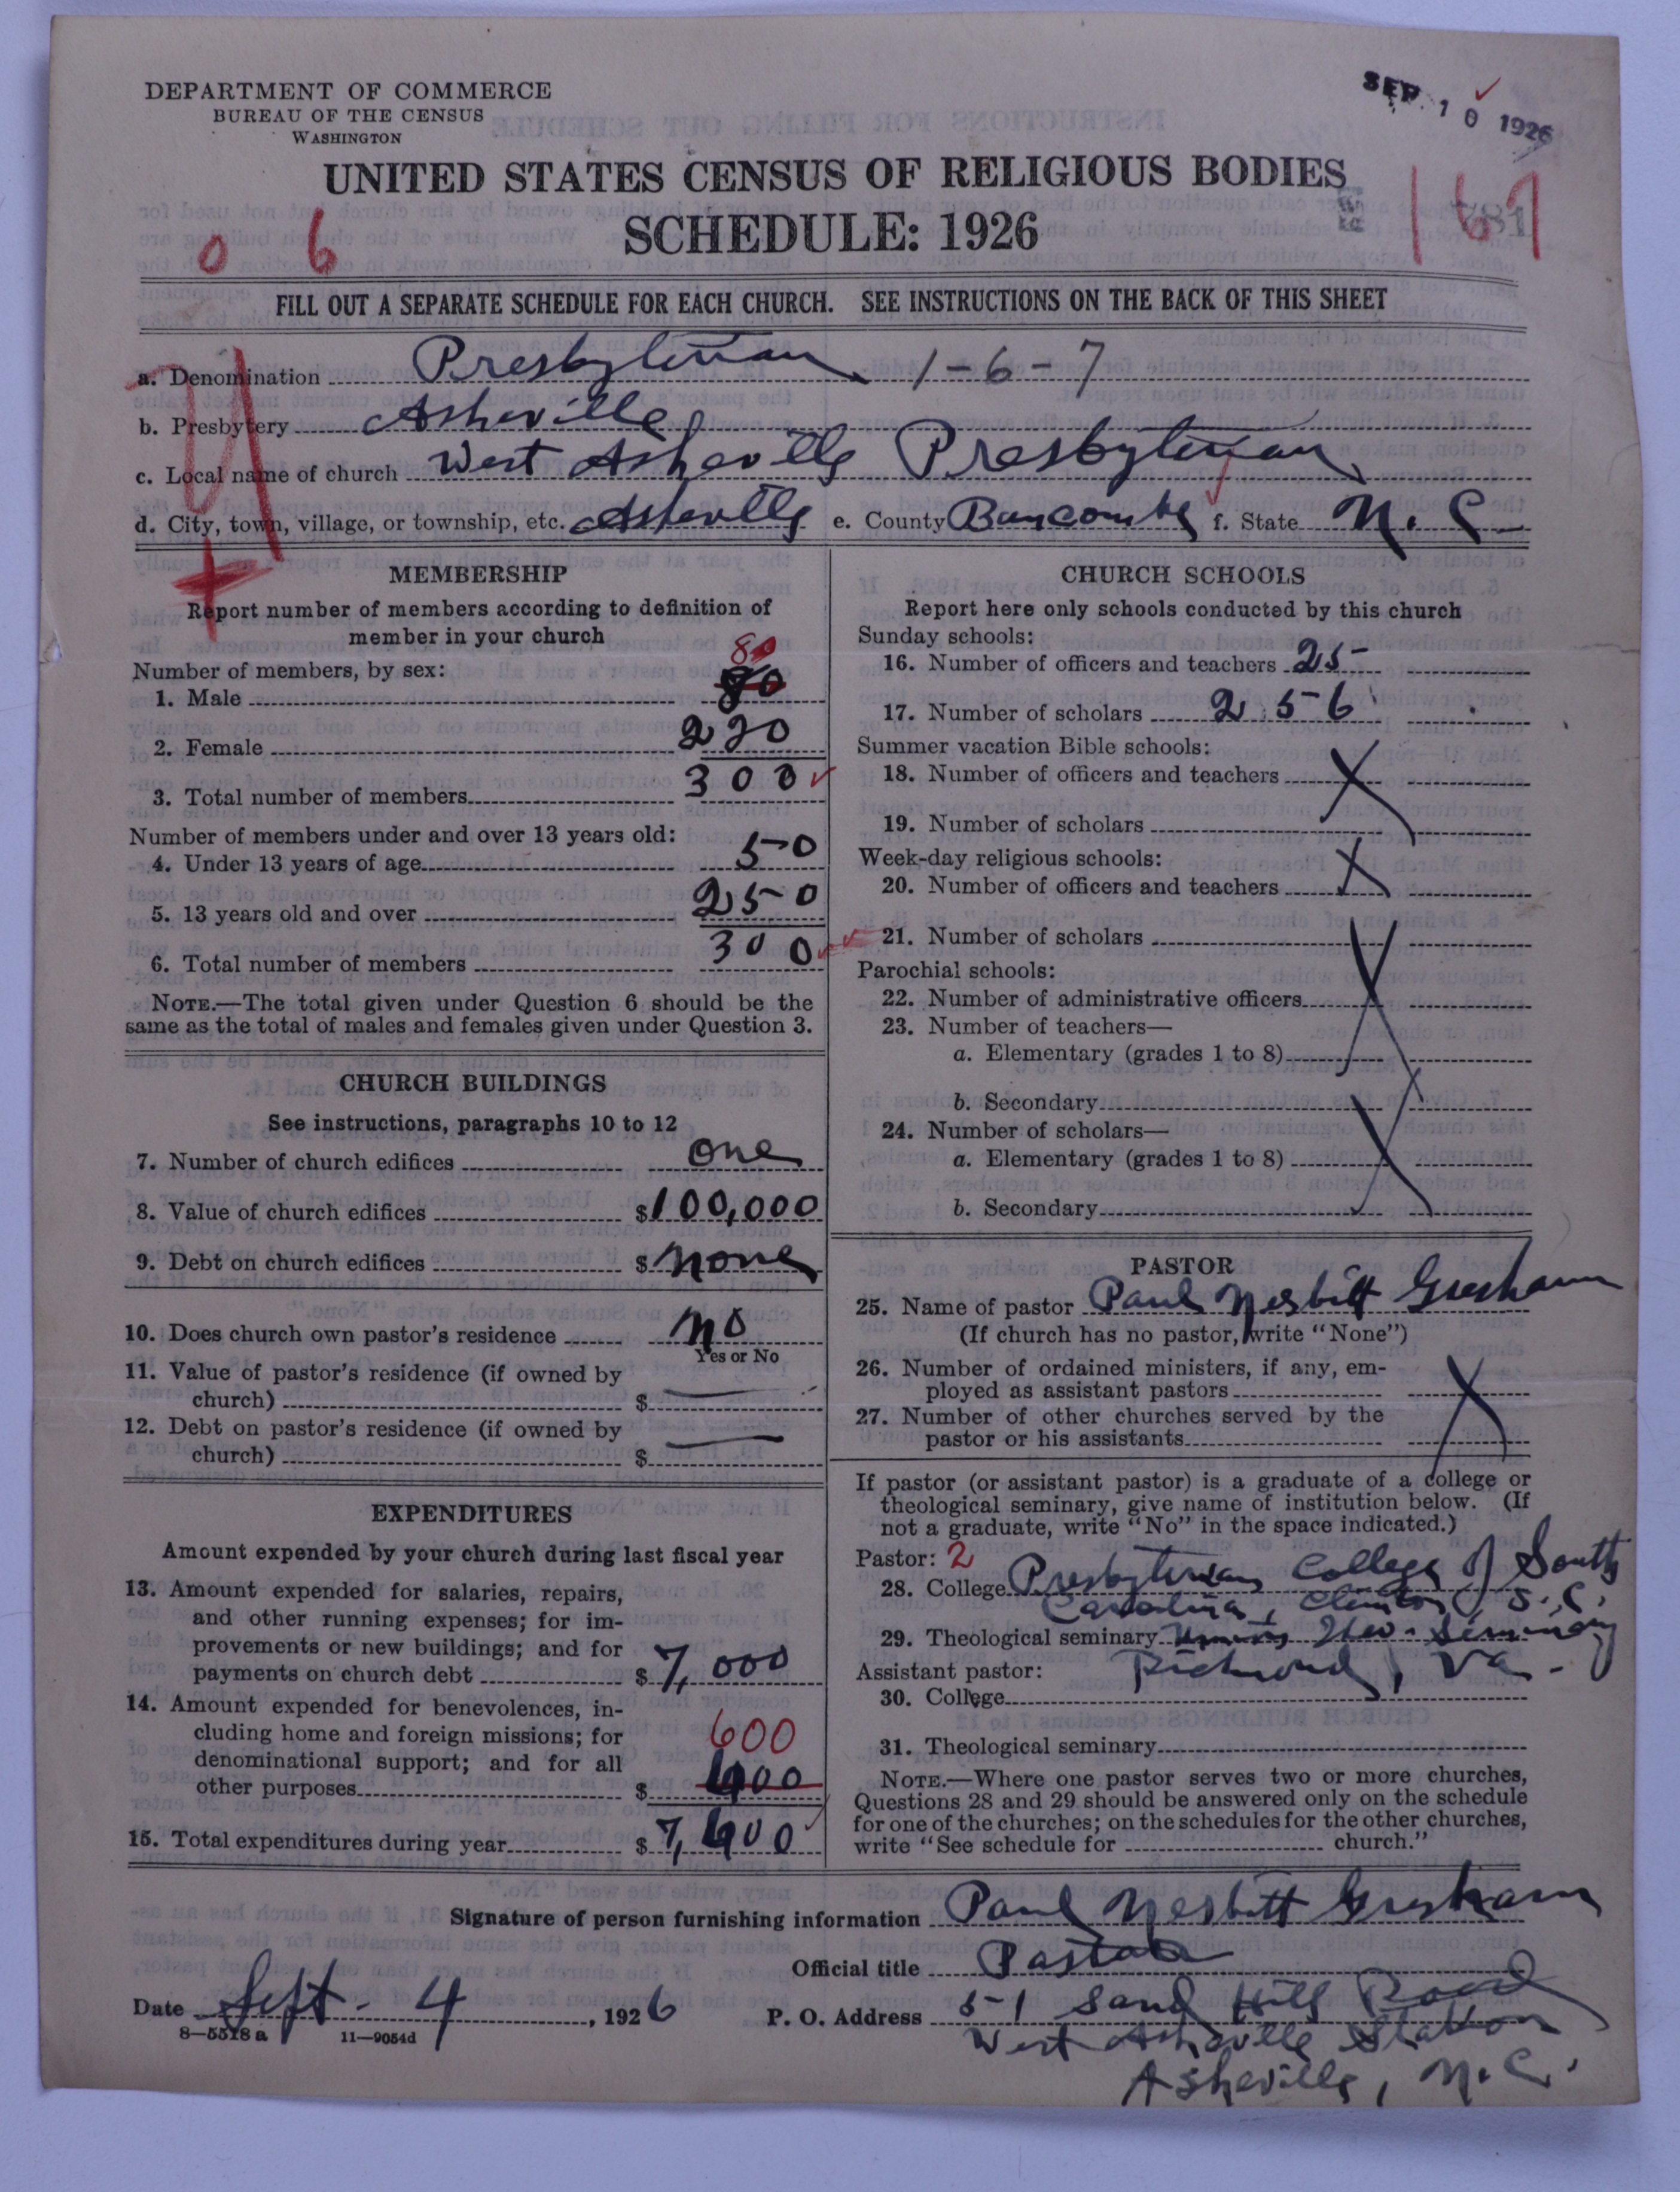 DEPARTMENT OF COMMERCE
BUREAU OF THE CENSUS
WASHINGTON
SEP 10 1926
UNITED STATES CENSUS OF RELIGIOUS BODIES
SCHEDULE: 1926
0 6
167
FILL OUT A SEPARATE SCHEDULE FOR EACH CHURCH. SEE INSTRUCTIONS ON THE BACK OF THIS SHEET
a. Denomination Presbyterian 1-6-7
b. Presbytery Asheville
c. Local name of church West Asheville Presbyterian
d. City, town, village, or township, etc. Asheville e. County Buncombe f. State N. C.
MEMBERSHIP
Report number of members according to definition of
member in your church
Number of members, by sex:
80
1. Male 80
2. Female 220
3. Total number of members 300
Number of members under and over 13 years old:
4. Under 13 years of age 50
5. 13 years old and over 250
6. Total number of members 300
NOTE.—The total given under Question 6 should be the
same as the total of males and females given under Question 3.
CHURCH BUILDINGS
See instructions, paragraphs 10 to 12
7. Number of church edifices one
8. Value of church edifices $100,000
9. Debt on church edifices $ none
10. Does church own pastor's residence no
Yes or No
11. Value of pastor's residence (if owned by
church) $ —
12. Debt on pastor's residence (if owned by
church) $ —
EXPENDITURES
Amount expended by your church during last fiscal year
13. Amount expended for salaries, repairs,
and other running expenses; for im-
provements or new buildings; and for
payments on church debt $ 7,000
14. Amount expended for benevolences, in-
cluding home and foreign missions; for 600
denominational support; and for all
other purposes $ 600
15. Total expenditures during year $ 7,600
CHURCH SCHOOLS
Report here only schools conducted by this church
Sunday schools:
16. Number of officers and teachers 25
17. Number of scholars 256
Summer vacation Bible schools:
18. Number of officers and teachers X
19. Number of scholars
Week-day religious schools:
20. Number of officers and teachers X
21. Number of scholars
Parochial schools:
22. Number of administrative officers
23. Number of teachers—
a. Elementary (grades 1 to 8)
b. Secondary
24. Number of scholars—
a. Elementary (grades 1 to 8)
b. Secondary
PASTOR
25. Name of pastor Paul Nesbitt Gresham
(If church has no pastor, write "None")
26. Number of ordained ministers, if any, em-
ployed as assistant pastors
27. Number of other churches served by the
pastor or his assistants
If pastor (or assistant pastor) is a graduate of a college or
theological seminary, give name of institution below. (If
not a graduate, write "No" in the space indicated.)
Pastor: 2
28. College Presbyterian College of South
Carolina, Clinton, S.C.
29. Theological seminary Union Theo. Seminary
Assistant pastor: Richmond, Va.
30. College
31. Theological seminary
NOTE.—Where one pastor serves two or more churches,
Questions 28 and 29 should be answered only on the schedule
for one of the churches; on the schedules for the other churches,
write "See schedule for church."
Signature of person furnishing information Paul Nesbitt Gresham
Official title Pastor
Date Sept. 4, 1926 P. O. Address 51 Sand Hill Road
8—5518 a 11—9054d
West Asheville Station
Asheville, N.C.